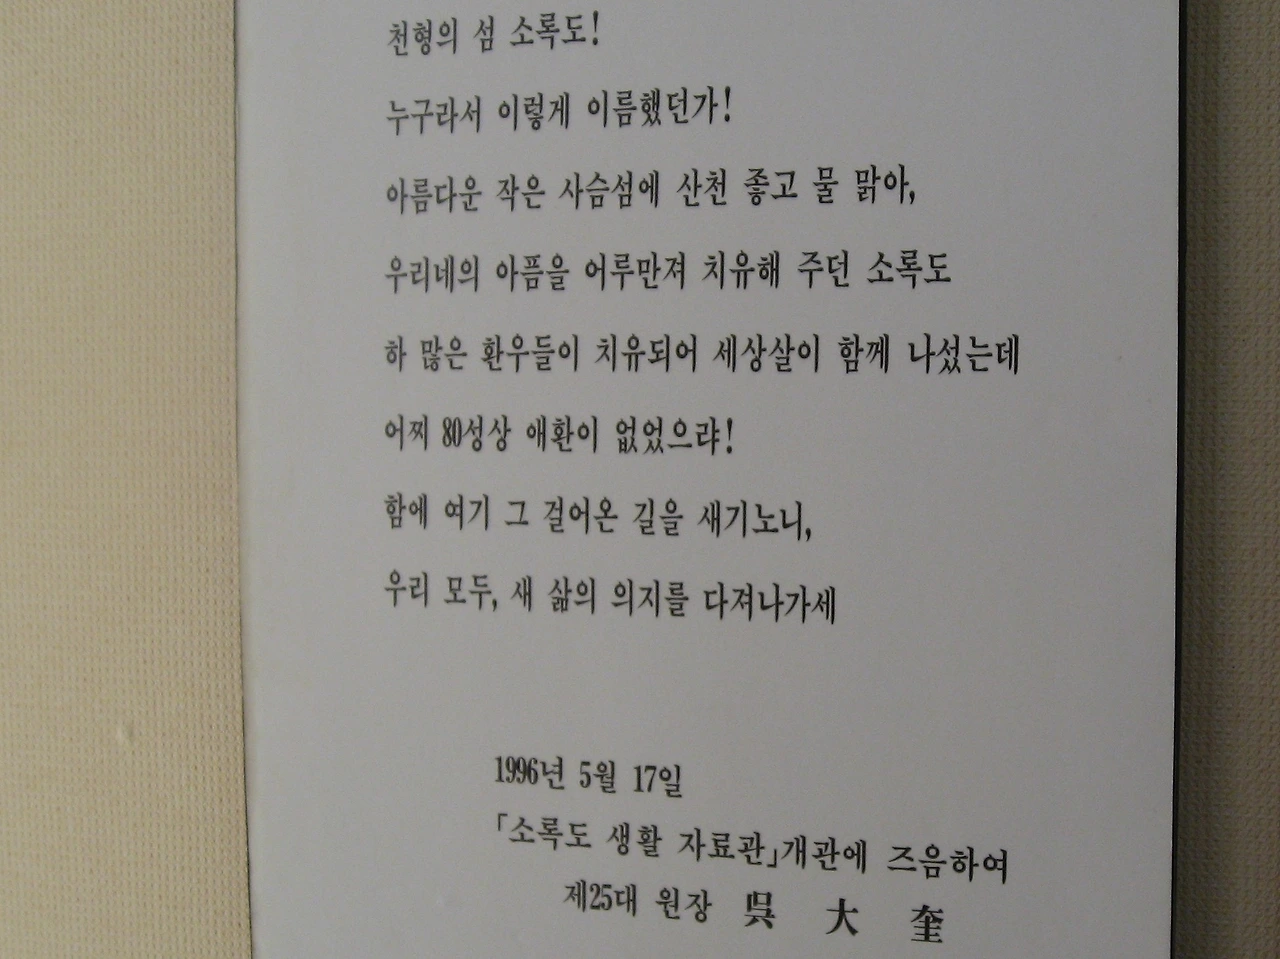 천형의 섬 소록도!
누구라서 이렇게 이름했던가!
아름다운 작은 사슴섬에 산천 좋고 물 맑아,
우리네의 아픔을 어루만져 치유해 주던 소록도
하 많은 환우들이 치유되어 세상살이 함께 나섰는데
어찌 80성상 애환이 없었으랴!
함에 여기 그 걸어온 길을 새기노니,
우리 모두, 새 삶의 의지를 다져나가세
1996년 5월 17일
「소록도 생활 자료관」개관에 즈음하여
제25대 원장 吳 大 奎